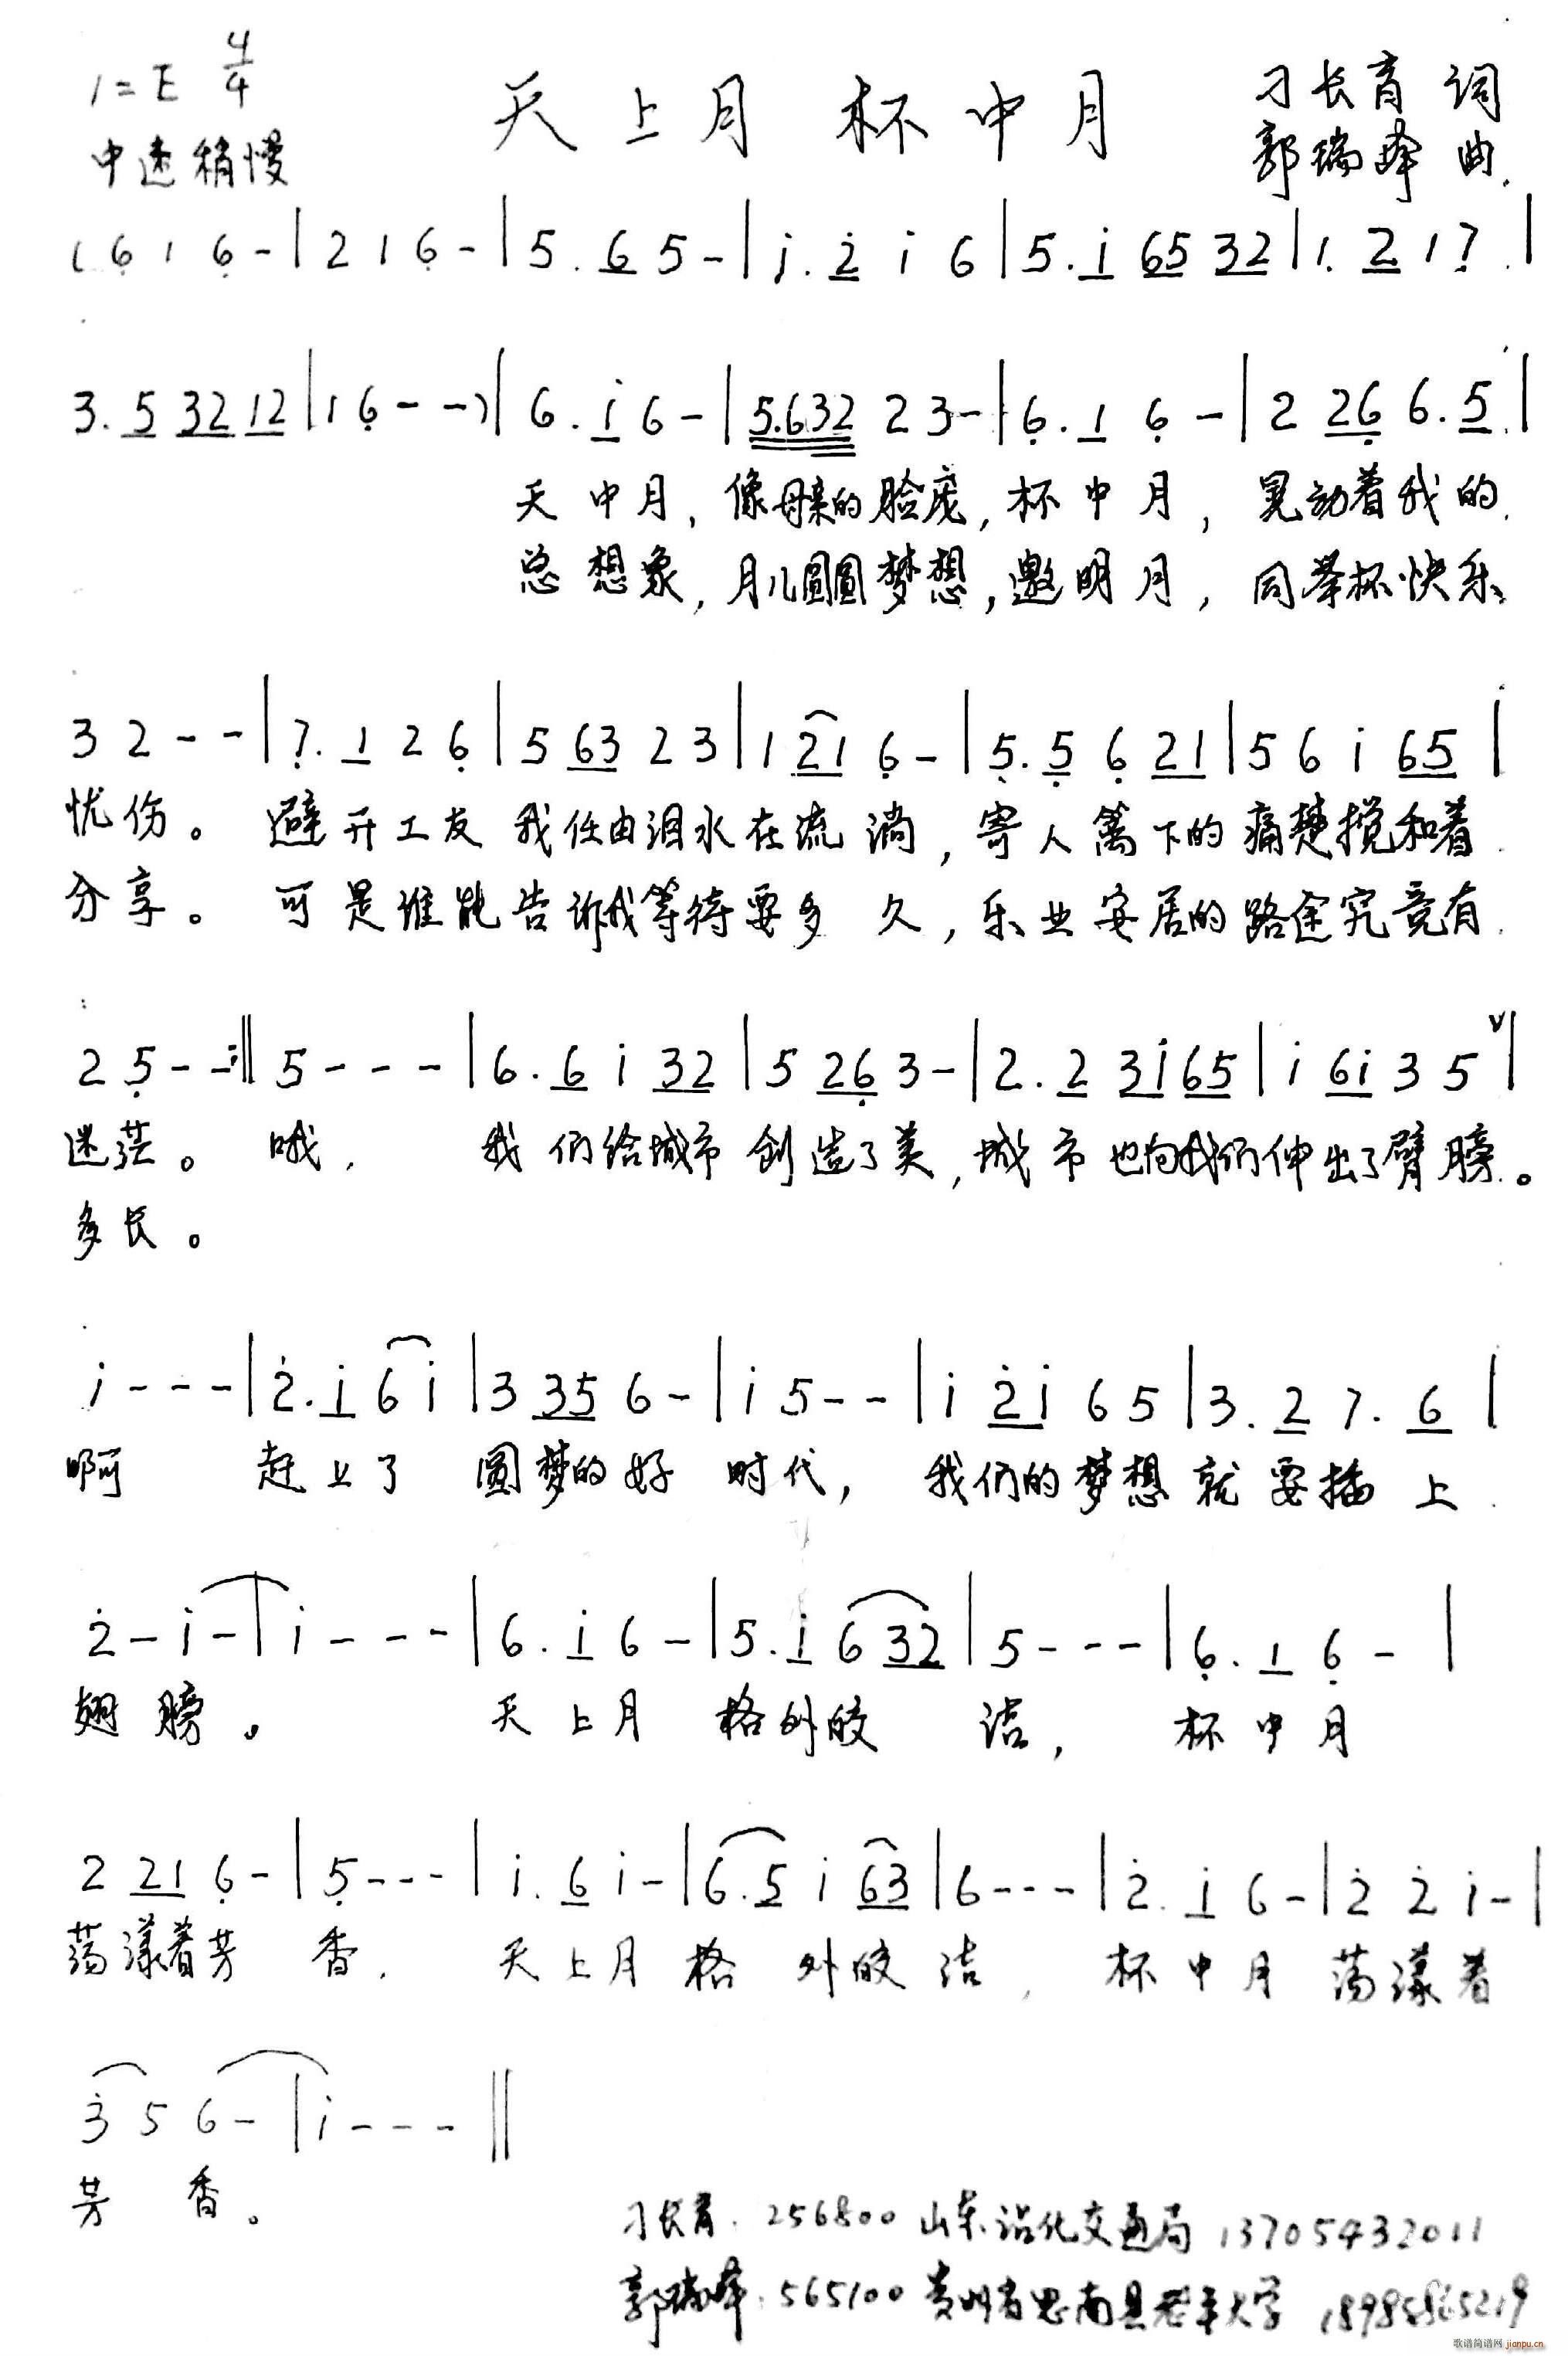 1=E 4/4
天上月 杯中月
刁长育 词
中速稍慢
郭瑞峰 曲
( 6̣ 1 6̣ - | 2 1 6̣ - | 5. 6 5 - | i. 2̇ i 6 | 5. i 65 32 | 1. 2 1 7̣. |
3. 5 32 12 | 1 6̣ - - ) | 6. i 6 - | 5.632 2 3 - | 6̣. 1 6̣ - | 2 26̣ 6. 5 |
天中月, 像母亲的脸庞, 杯中月, 晃动着我的
总想象, 月儿圆圆梦想, 邀明月, 同举杯快乐
3 2 - - | 7̣. 1 2 6̣ | 5 63 2 3 | 1 21 6̣ - | 5̣. 5̣ 6̣ 21 | 5 6 i 65 |
忧伤。 避开工友 我任由泪水在流淌, 寄人篱下的痛楚搅和着
分享。 可是谁能告诉我等待要多久, 乐业安居的路途究竟有
2 5̣ - - :‖ 5 - - - | 6. 6 i 32 | 5 26̣ 3 - | 2. 2 3i 65 | i 6i 3 5 ∨ |
迷茫。 哦, 我们给城市创造了美, 城市也向我们伸出了臂膀。
多长。
i - - - | 2̇. i 6 i | 3 35 6 - | i 5 - - | i 2̇i 6 5 | 3. 2 7. 6 |
啊 赶上了 圆梦的好 时代, 我们的梦想就要插上
2̇ - i - | i - - - | 6. i 6 - | 5. i 6 32 | 5 - - - | 6̣. 1 6̣ - |
翅膀。 天上月 格外皎洁, 杯中月
2 21 6̣ - | 5̣ - - - | i. 6 i - | 6. 5 i 63 | 6 - - - | 2̇. i 6 - | 2̇ 2̇ i - |
荡漾着芳香, 天上月格外皎洁, 杯中月荡漾着
3̇ 5 6 - | i - - - ‖
芳 香。
刁长育. 256800 山东沾化交通局 13705432011
郭瑞峰. 565100 贵州省思南县老年大学
歌谱简谱网 jianpu.cn